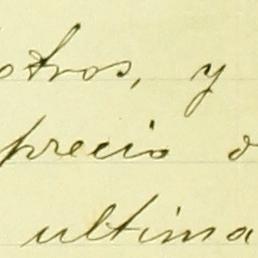 otros, y
precio d
ultima